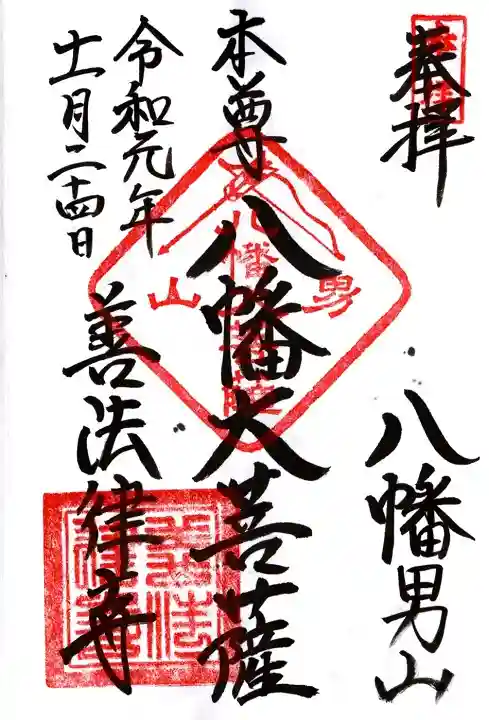 奉拝
八幡男山
本尊
八幡大菩薩
令和元年
十一月二十四日
善法律寺
男
山
八幡